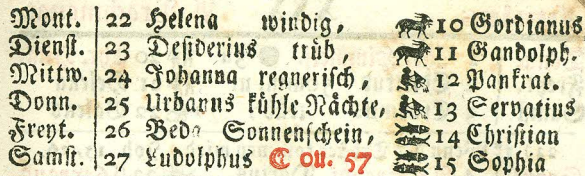 Mont. 22 Helena windig, 10 Gordianus
Dienst. 23 Desiderius trüb, 11 Gandolph.
Mittw. 24 Johanna regnerisch, 12 Pankrat.
Donn. 25 Urbanns kühle Nächte, 13 Servatius
Freyt. 26 Beda Sonnenschein, 14 Christian
Samst. 27 Ludolphus ☾ 0u. 57 15 Sophia